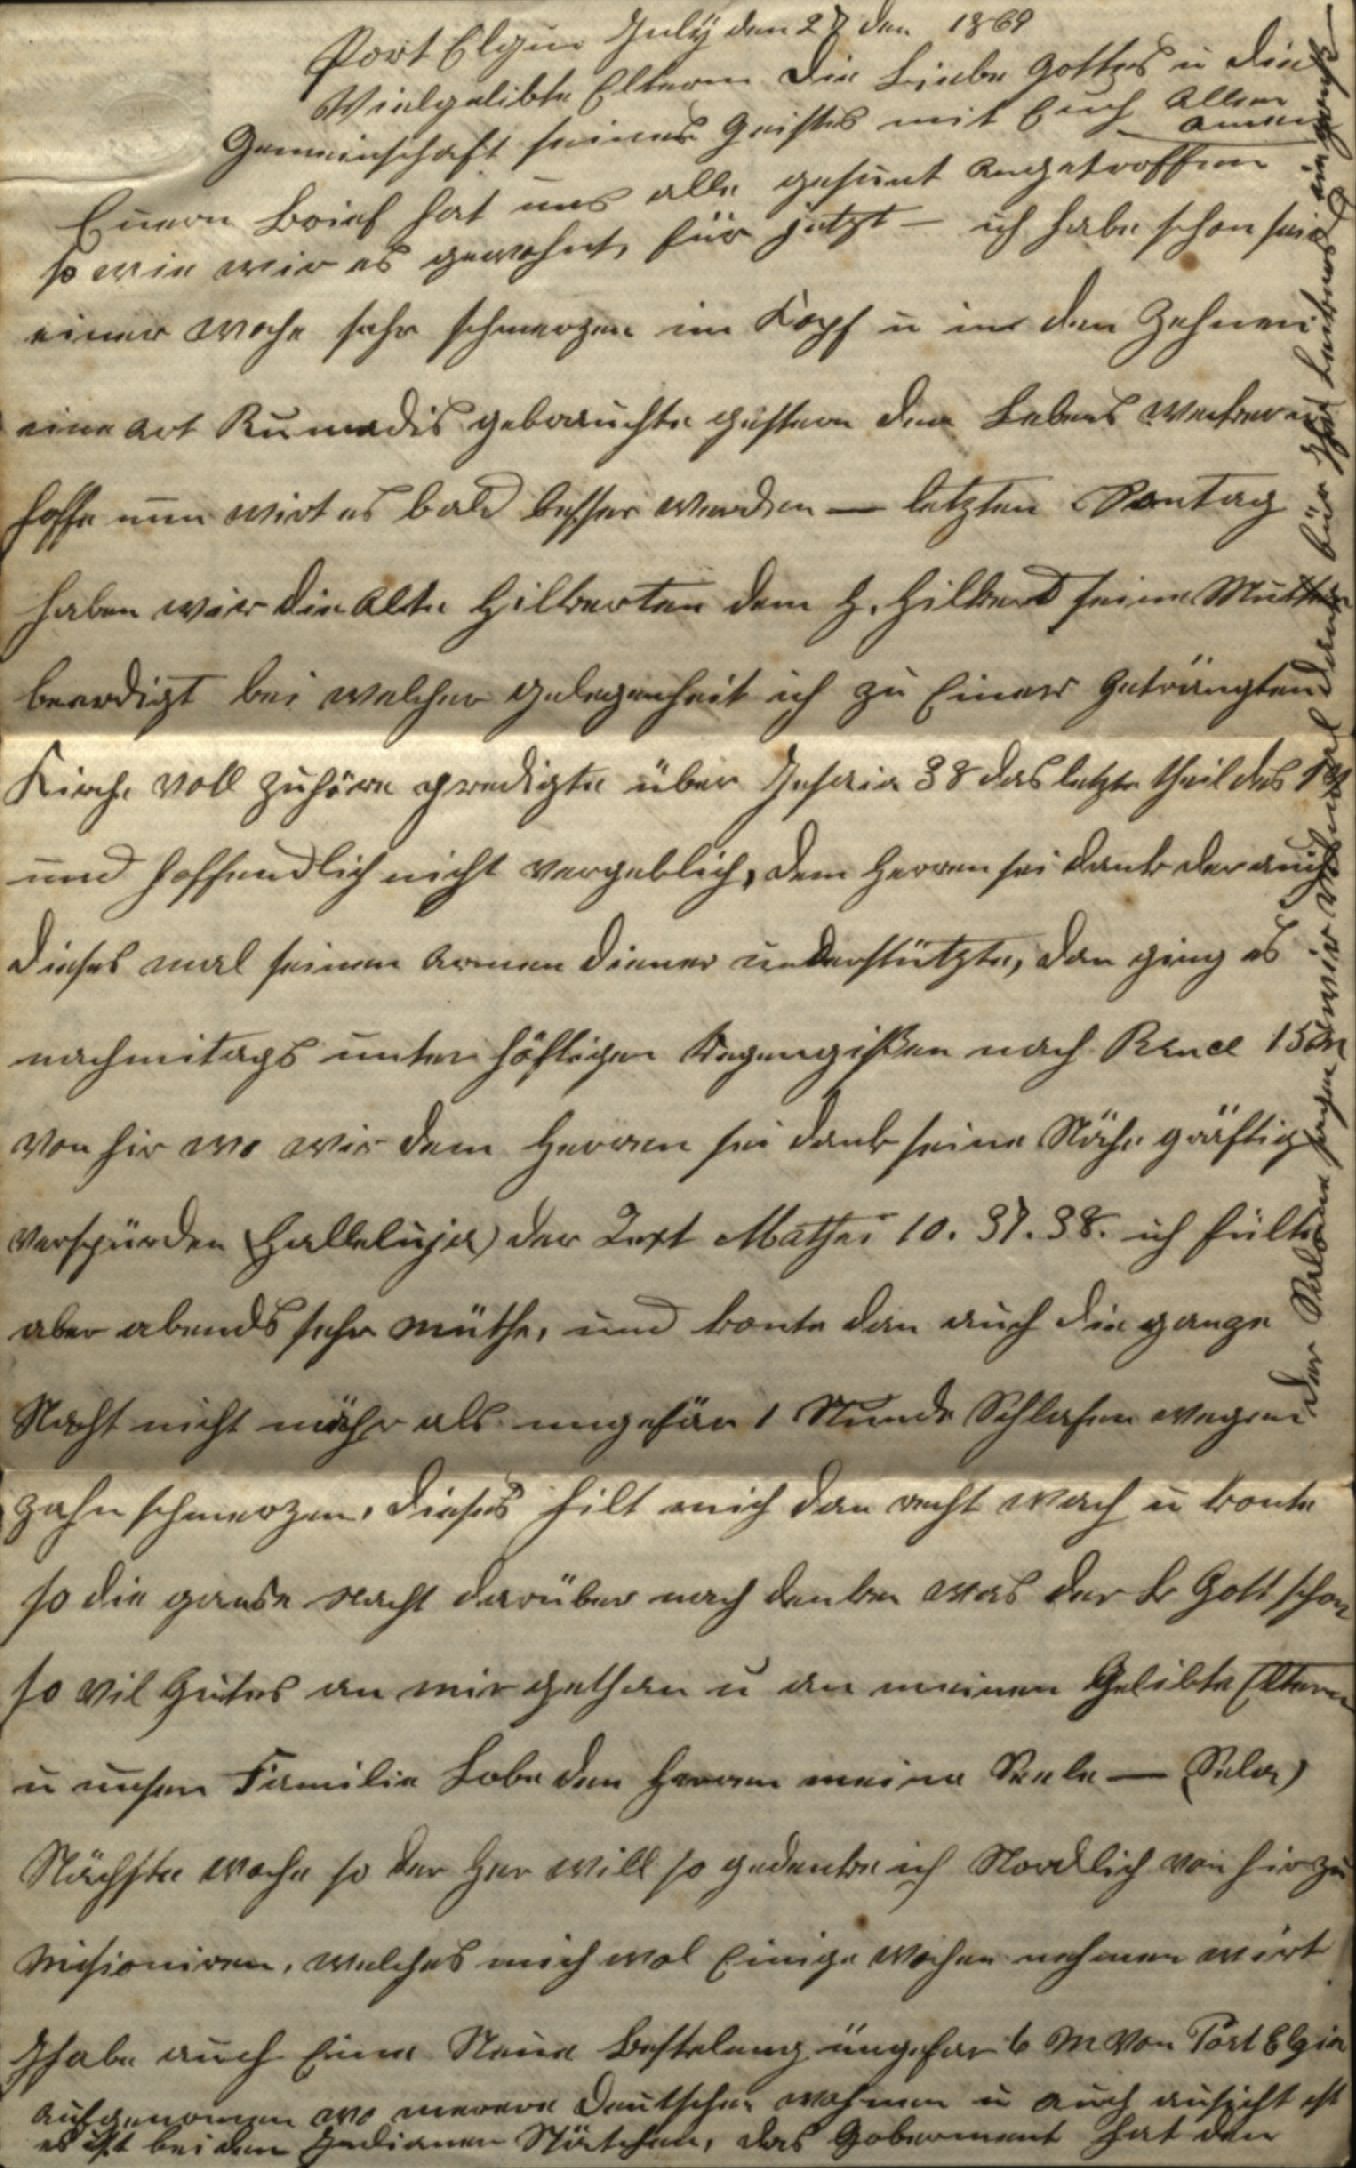 Port Elgin July den 27 den 1869
Vielgelibte Eltern die Liebe Gottes u die
Gemeinschaft seines Geistes mit Euch Allen
amen
Euern brief hat uns alle gesunt angetroffen
so wie wir es gewohnt, für jetzt — ich habe schon seid
einer woche sehr schmerzen im Kopf u in den Zehnen
eine art Rumadis gebrauchte gestern den Lebens wecker
hoffe nun wirt es bald besser werden — letzten Sontag
haben wir die Alte Hilberten dem H. Hilberd seine Mutter
beerdigt bei welcher gelegenheit ich zu Einer geträngten
Kirche voll zuhörn predigte über Jesaia 38 das letzte theil des 1
und hoffendlich nicht vergeblich, dem Herren sei dank der auch
dieses mal seinen armen diener understützte, dan ging es
nachmitags unter häftigen Regengißen nach Bruce 15 m
von hir wo wir dem Herren sei dank seine Nähe gräftig
verspürden (Halleluja) der Text Mathei 10. 37. 38. ich fülte
aber abends sehr müthe, und konte dan auch die ganze
Nacht nicht mähr als ungefär 1 Stunde Schlafen wegen
zahn schmerzen, dieses hilt mich dan recht wach u konte
so die ganse Nacht darüber nach denken was der Lb Gott schon
so vil Gutes an mir gethan u an meinen Gelibte Eltern
u unsern Familie Lobe den Herren meine Seele — (Sela)
Nächste woche so der Her will so gedenke ich Nordlich von hir zu
misioniren, welches mich wol Einige wochen nehmen wirt
Ihabe auch Eine Neue bestelung üngefar 6 m von Port Elgin
aufgenomen wo merere Deutsche wohnen u auch ausicht ist
es ist bei dem Indianer Stätchen, das Goberment hat den
der sagen wir nochmal dank für Ihr